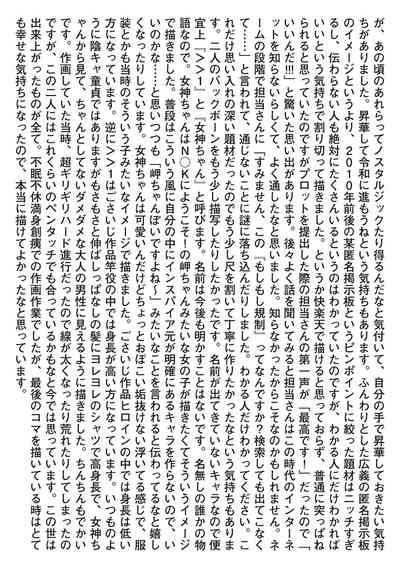 が、あの頃のあれらってノスタルジックたり得るんだなと気付いて、自分の手で昇華しておきたい気持
ちがありました。昇華して令和に進もうねという気持ちもあります。ふんわりとした広義の匿名掲示板
のイメージというより、2010年前後の某匿名掲示板というピンポイントに絞った題材はニッチすぎ
るし、伝わらない人も絶対にたくさんいるというのはわかっていたのですが、わかる人にだけわかれば
いいという気持ちで割り切って描きました。というか快楽天で描けると思っておらず、普通に突っぱね
られると思っていたのですがプロットを提出した際の担当さんの第一声が「最高です！」だったので「
いいんだ!!!」と驚いた思い出があります。後々よく話を聞いてみると担当さんはこの時代のインターネ
ットを知らないらしくて、よく通したなと思いました。知らなかったからこそなのかもしれません。ネ
ームの段階で担当さんに「すみません、この『もしもし規制』ってなんですか？検索しても出てこなく
て……」と言われて、通じないことに謎に落ち込んだりしました。わかる人だけわかってください。こ
れだけ思い入れの深い題材だったのでもう少し尺を割いて丁寧に作りたかったなという気持ちもありま
す。二人のバックボーンをもう少し描写したりしたかったです。名前が出てきていないキャラなので便
宜上「＞＞1」と「女神ちゃん」と呼びます。名前は今後も明かすことはないです。名無しの誰かの物
語なので。女神ちゃんはN○Kにようこそ！の岬ちゃんみたいな女の子が描きたくてそういうイメージ
で描きました。普段はこういう風に自分の中にインスパイア元が明確にあるキャラを作らないので、い
いのかな……と思いつつも「岬ちゃんぽいですよね〜」みたいなことを言われると伝わってるなと嬉し
くなったりしています。女神ちゃんは可愛いんだけどちょっとおぼこい垢抜けない浮いてる感じで、服
装とかも当時のそういう子みたいなイメージで描きました。ごさいじ作品ヒロインの中では身長は低い
方になっています。逆に＞＞1はごさいじ作品竿役の中では身長が高い方になっています。いつものよ
うに陰キャ童貞ではありますがもさもさと伸ばしっぱなしの髪にヨレヨレのシャツで高身長で、女神ち
ゃんから見て、ちゃんとしてないダメダメな大人の男性に見えるように描きました。ちんちんもでかい
です。作画していた当時、超ギリギリハード進行だったので線が太くなったり荒れたりしてしまったの
ですが、この二人にはこれくらいのペンタッチでも合っているかもなと今では思っています。この世は
出来上がったものが全て。不眠不休満身創痍での作画作業でしたが、最後のコマを描いている時はとて
も幸せな気持ちになったので、本当に描けてよかったなと思っています。